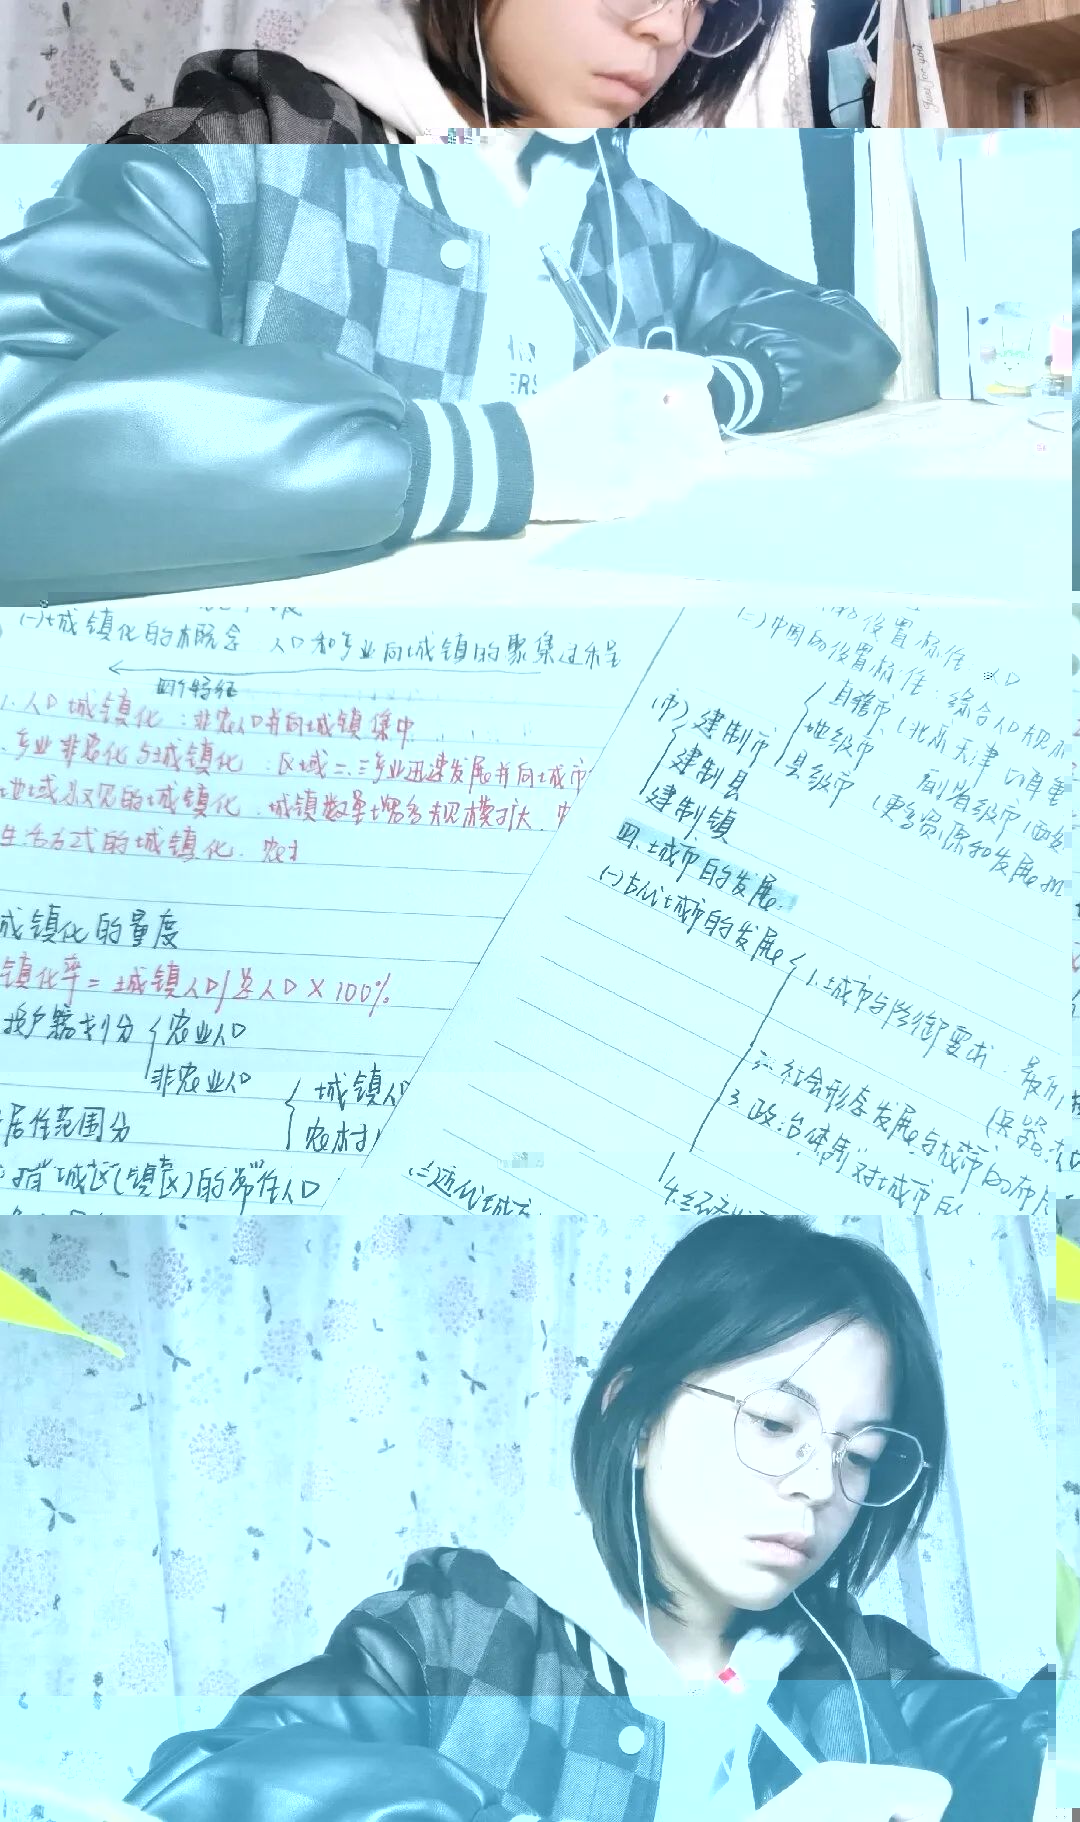 Just for you
ERS
(一)城镇化的概念 人口和产业向城镇的聚集过程
四个特征
1.人口城镇化：非农人口并向城镇集中
产业非农化与城镇化.区域二、三产业迅速发展并向城市
地域景观的城镇化.城镇数量增多规模扩大.
生活方式的城镇化.农村
成镇化的量度
镇化率=城镇人口/总人口×100%
按户籍划分 农业人口
非农业人口
居住范围分
城镇人口
农村
指"城区(镇区)的常住人口
设置标准
(二)中国的设置标准：综合人口规
(市)建制市
直辖市(北京 天津
地级市
副省级市(西安
县级市
(更多资源和发展
建制县
建制镇
四.城市的发展.
(一)古代城市的发展
1.城市与防御要求.最
2.社会形态发展与城市的布局
3.政治体制对城市
4.经济
(二)近代城市